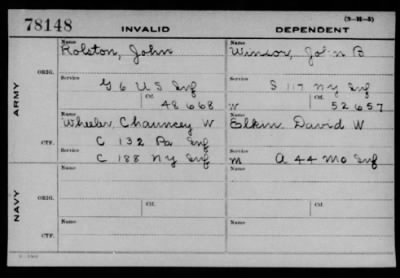 78148
INVALID
DEPENDENT
(3-11-8)
ARMY
ORIG.
Name
Rolston, John
Service
G 6 US Inf
Ctf.
48668
Name
Winsor, Jo'n B
Service
S 117 Ny Inf
W
Ctf.
52657
CTF.
Name
Wheeler, Chauncey W
Service
C 132 Pa Inf
C 188 NY Inf
Name
Elkin David W
Service
m A 44 Mo Inf
NAVY
ORIG.
Name
Service
Ctf.
Name
Service
Ctf.
CTF.
Name
Name